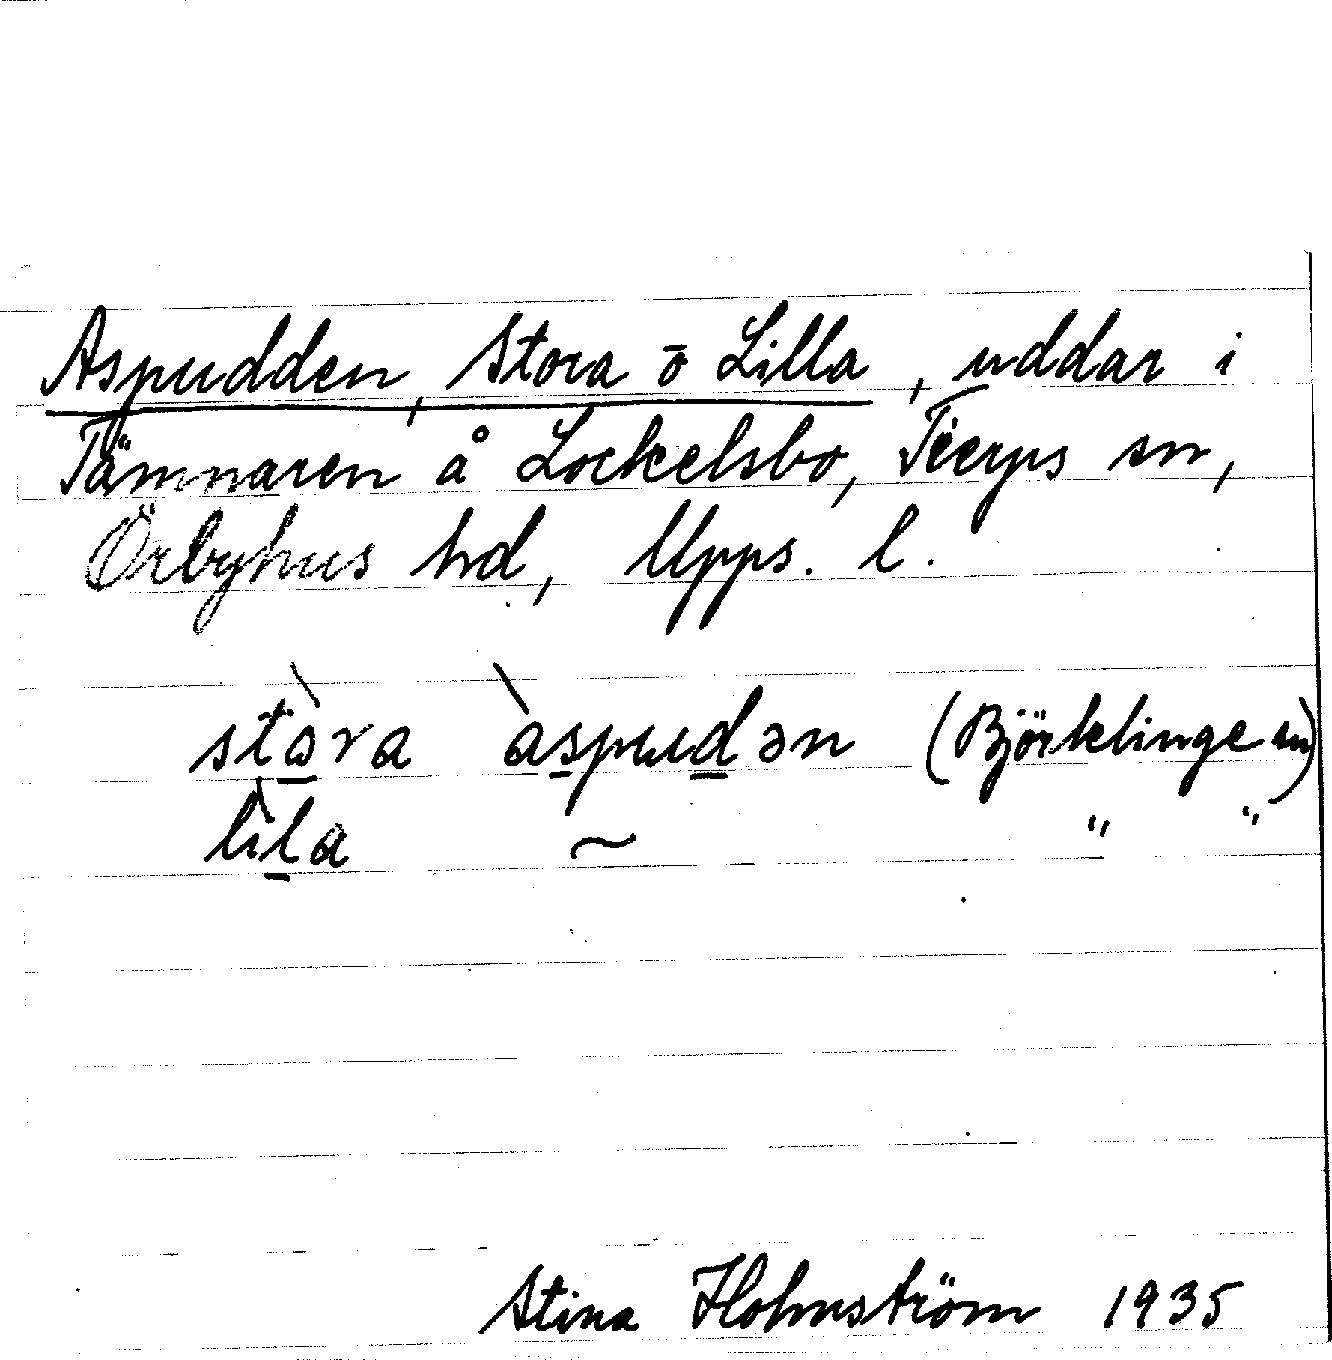 Aspudden, Stora o Lilla, uddar i
Tämnaren å Lockelsbo, Tierps sn,
Örbyhus hd, Upps. l.
stòra àspudən (Björklinge sn)
lìla ~ " "
Stina Holmström 1935